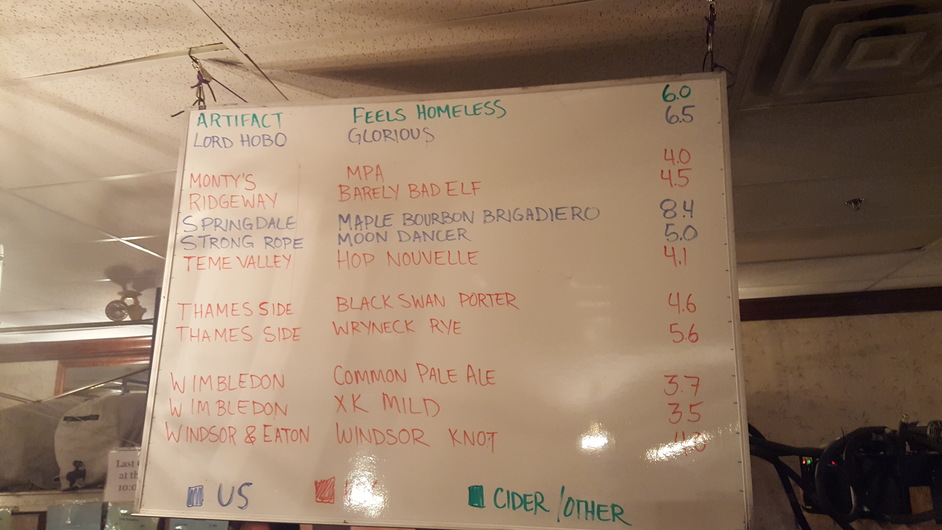 ARTIFACT FEELS HOMELESS 6.0
LORD HOBO GLORIOUS 6.5
MONTY'S MPA 4.0
RIDGEWAY BARELY BAD ELF 4.5
SPRINGDALE MAPLE BOURBON BRIGADIERO 8.4
STRONG ROPE MOON DANCER 5.0
TEME VALLEY HOP NOUVELLE 4.1
THAMES SIDE BLACK SWAN PORTER 4.6
THAMES SIDE WRYNECK RYE 5.6
WIMBLEDON COMMON PALE ALE 3.7
WIMBLEDON XK MILD 3.5
WINDSOR & EATON WINDSOR KNOT 4.0
US CIDER/OTHER
Last
at th
10:0